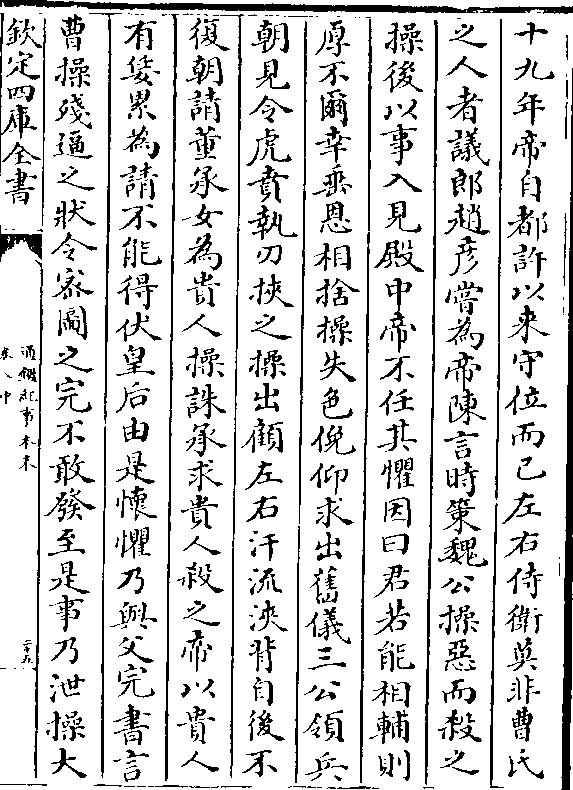 十九年帝自都許以来守位而已左右侍衛莫非曹氏
之人者議郎趙彦嘗為帝陳言時策魏公操惡而殺之
操後以事入見殿中帝不任其懼因曰君若能相輔則
厚不爾幸垂恩相捨操失色俛仰求出舊儀三公領兵
朝見令虎賁執刃挾之操出顧左右汗流浹背自後不
復朝請董承女為貴人操誅承求貴人殺之帝以貴人
有姙累為請不能得伏皇后由是懷懼乃與父完書言
曹操殘逼之狀令宻圖之完不敢發至是事乃泄操大
欽定四庫全書
通鑑紀事本末
卷八中
二十五